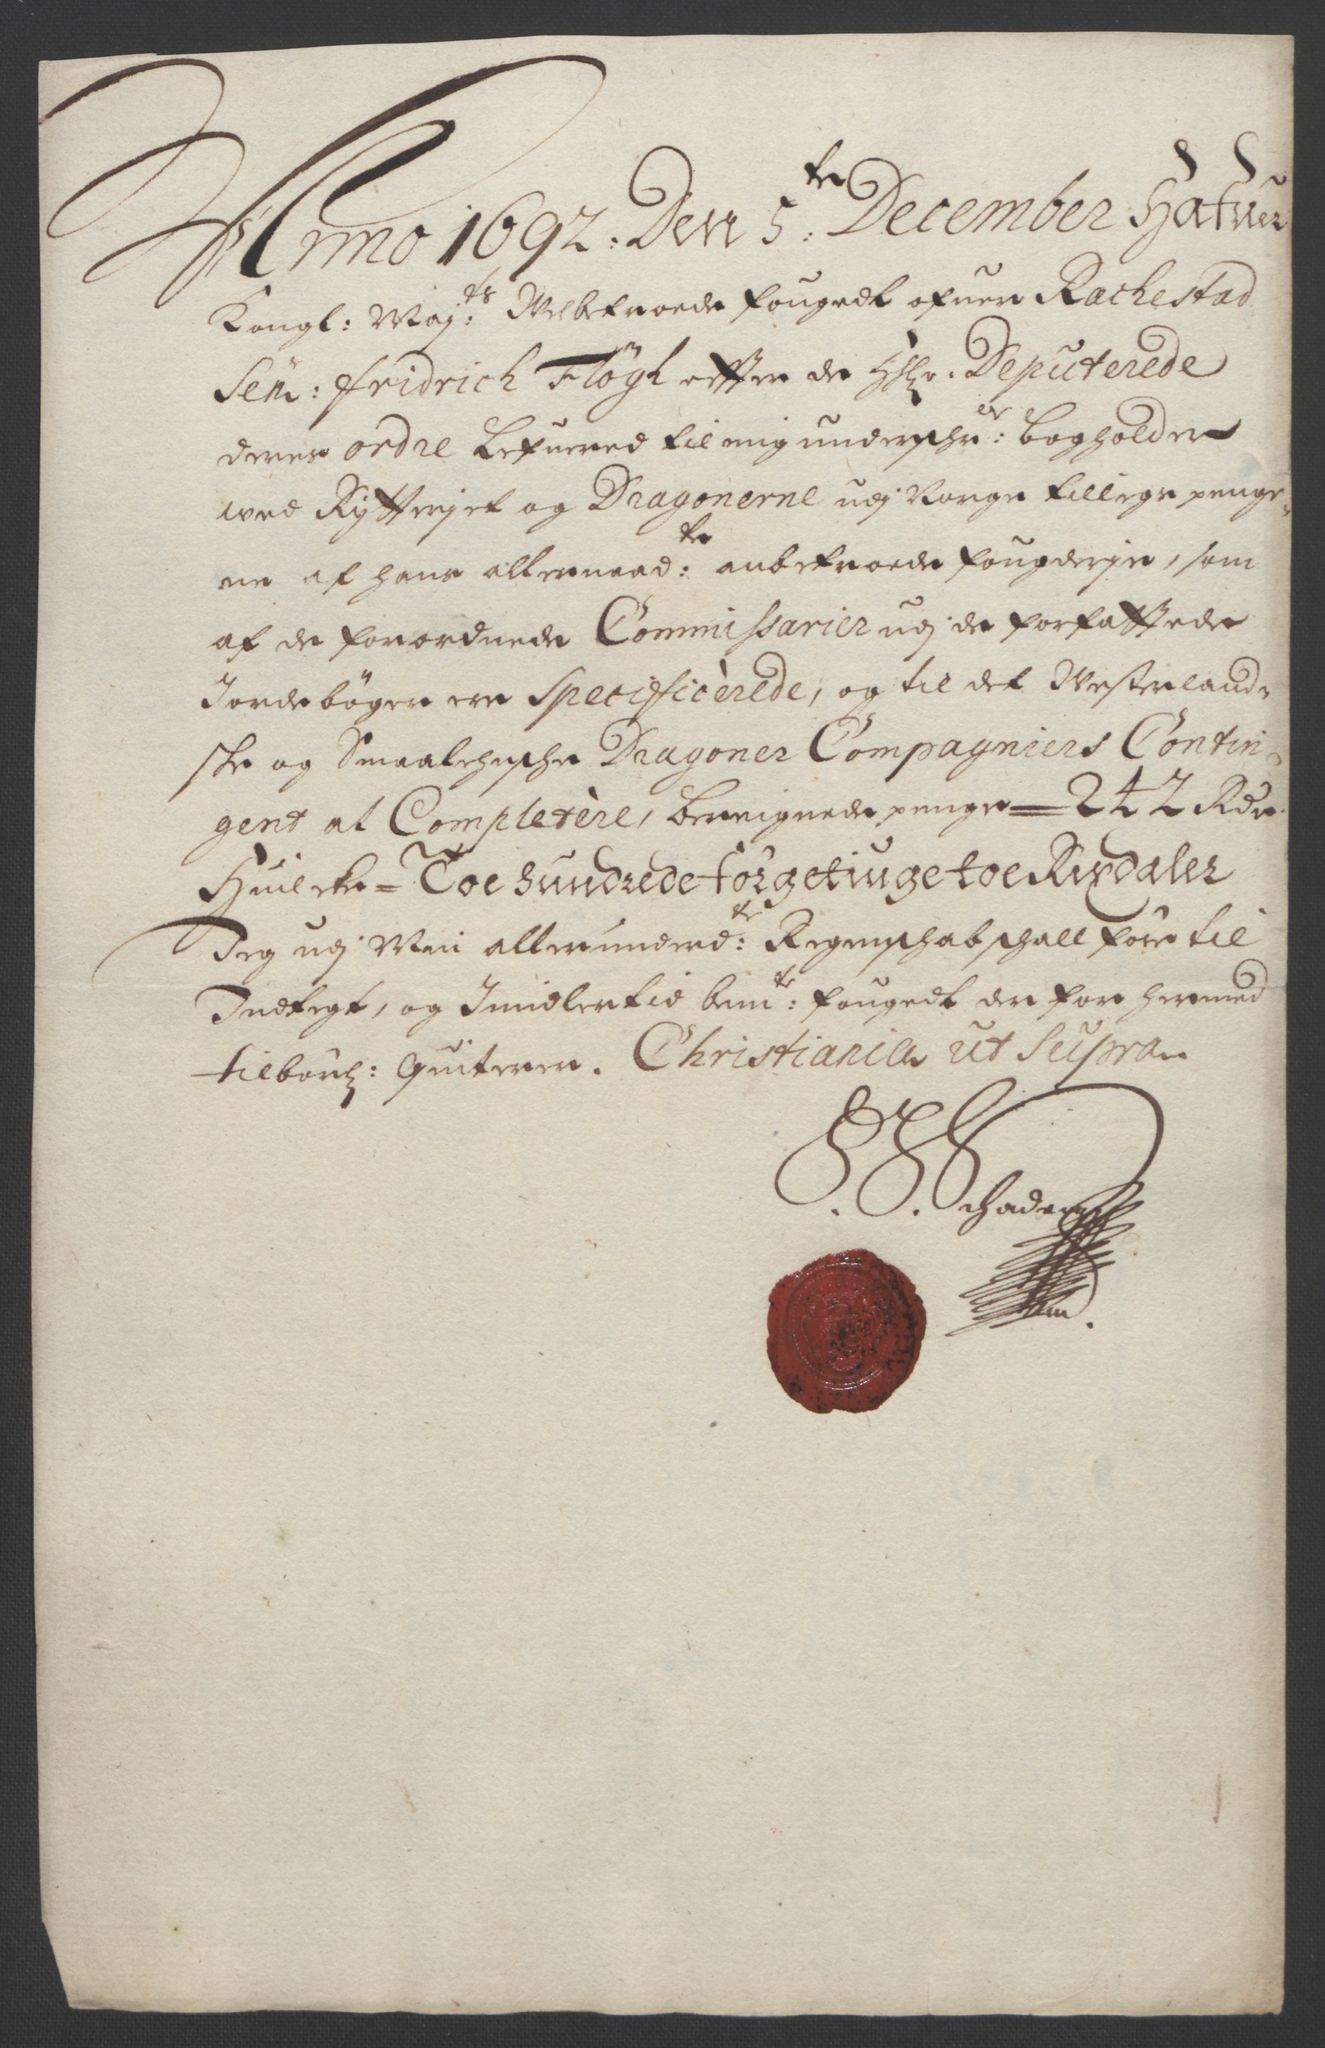 Anno 1692: Den 5:te December Hafuer
Kongl: Maj:ts Velbetroede fougedt ofuer Rachestad
Len: Fridrich Flögh effter de HHr. Deputerede
deres ordre Lefuered til mig underschr:er bogholder
wed Rytteriet og Dragonerne udj Norge tillegs penge¬
ne af hans allernaad:te anbetroede fougderje, som
af de forordnede Commissarier udj de forfattede
Jordebøger ere Specificerede, og til det Westerland¬
ske og Smaalehnske Dragoner Compagniers Contin¬
gent at Completere, berignede penge = 242 Rdr.
Huilcke = Toe hundrede förgetiuge toe Rixdaler
Jeg udj Min allerunderd:te Regenschab schall före til
Indtegt, og Imidlertid bem:te fougedt der for hermed
tilbörl: quiterer. Christiania ut Supra
Schade